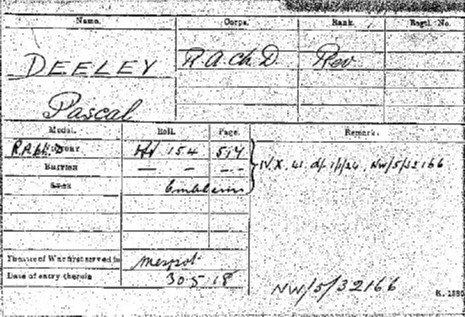 Name. Corps. Rank. Regtl. No.
DEELEY R.A.Ch.D. Rev
Pascal
Medal. Roll. Page. Remarks.
Victory 154
British — — —
Star Emblems
NW/5/32166
Theatre of War first served in Mespot
Date of entry therein 30.5.18
NW/5/32166
K. 1380